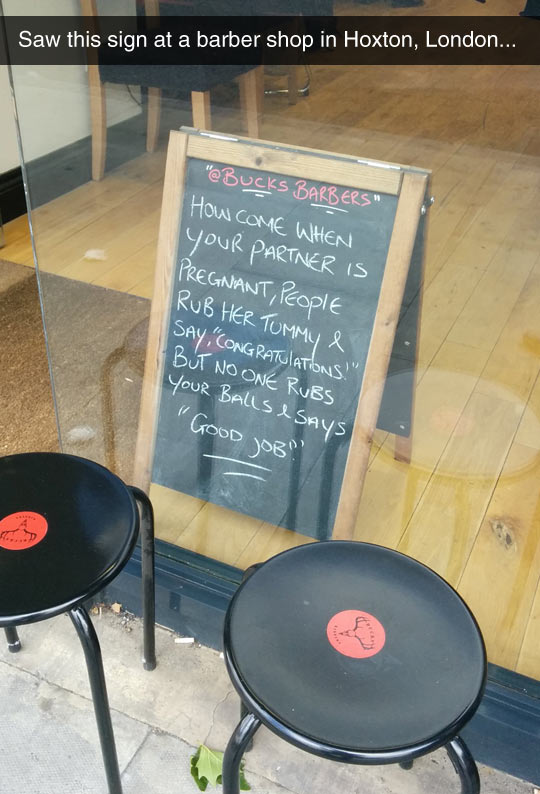 Saw this sign at a barber shop in Hoxton, London...
"@BUCKS BARBERS"
HOW COME WHEN
YOUR PARTNER IS
PREGNANT, PEOPLE
RUB HER TUMMY &
SAY, "CONGRATULATIONS!"
BUT NO ONE RUBS
YOUR BALLS & SAYS
"GOOD JOB!"